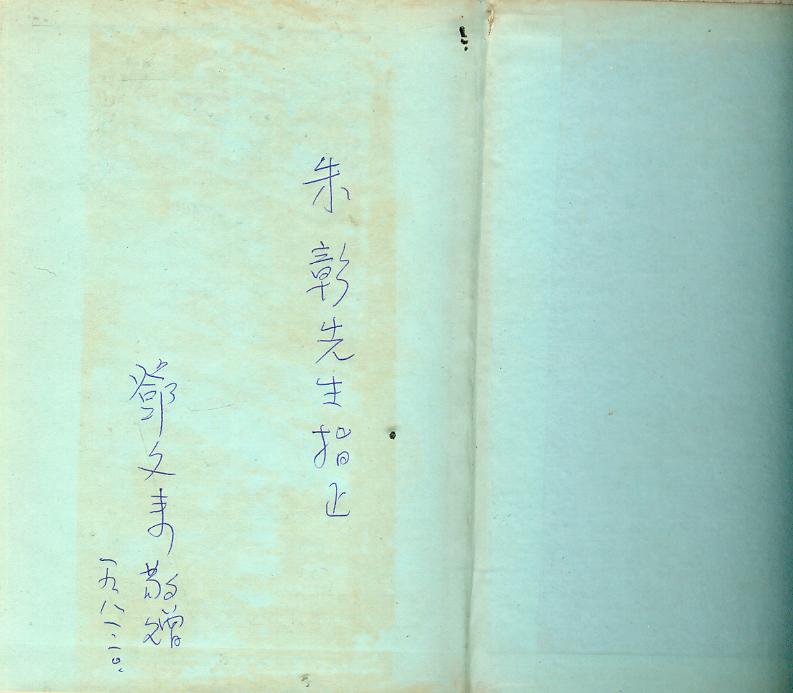 朱彰先生指正
鄧文來敬贈
一九八一.